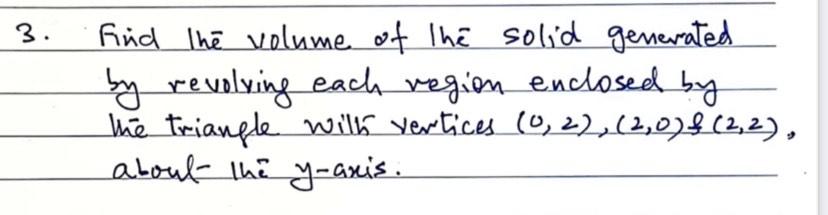 3. Find the volume of the solid generated
by revolving each region enclosed by
the triangle with vertices (0, 2), (2,0) & (2,2),
about the y-axis.